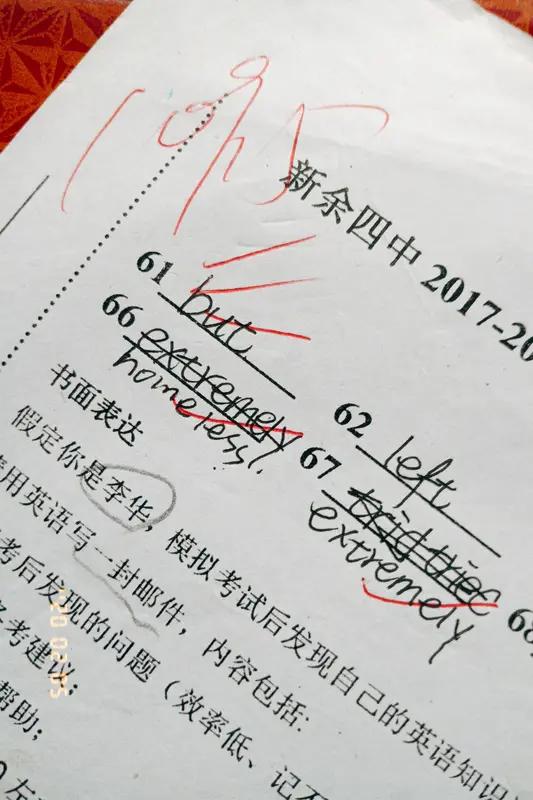 新余四中 2017-20
61 but
62 left
66 extremely
homeless
67
extremely
68
书面表达
假定你是李华，模拟考试后发现自己的英语知识
用英语写一封邮件，内容包括：
考后发现的问题（效率低、记不
考建议；
帮助；
0 左
'20 02 05